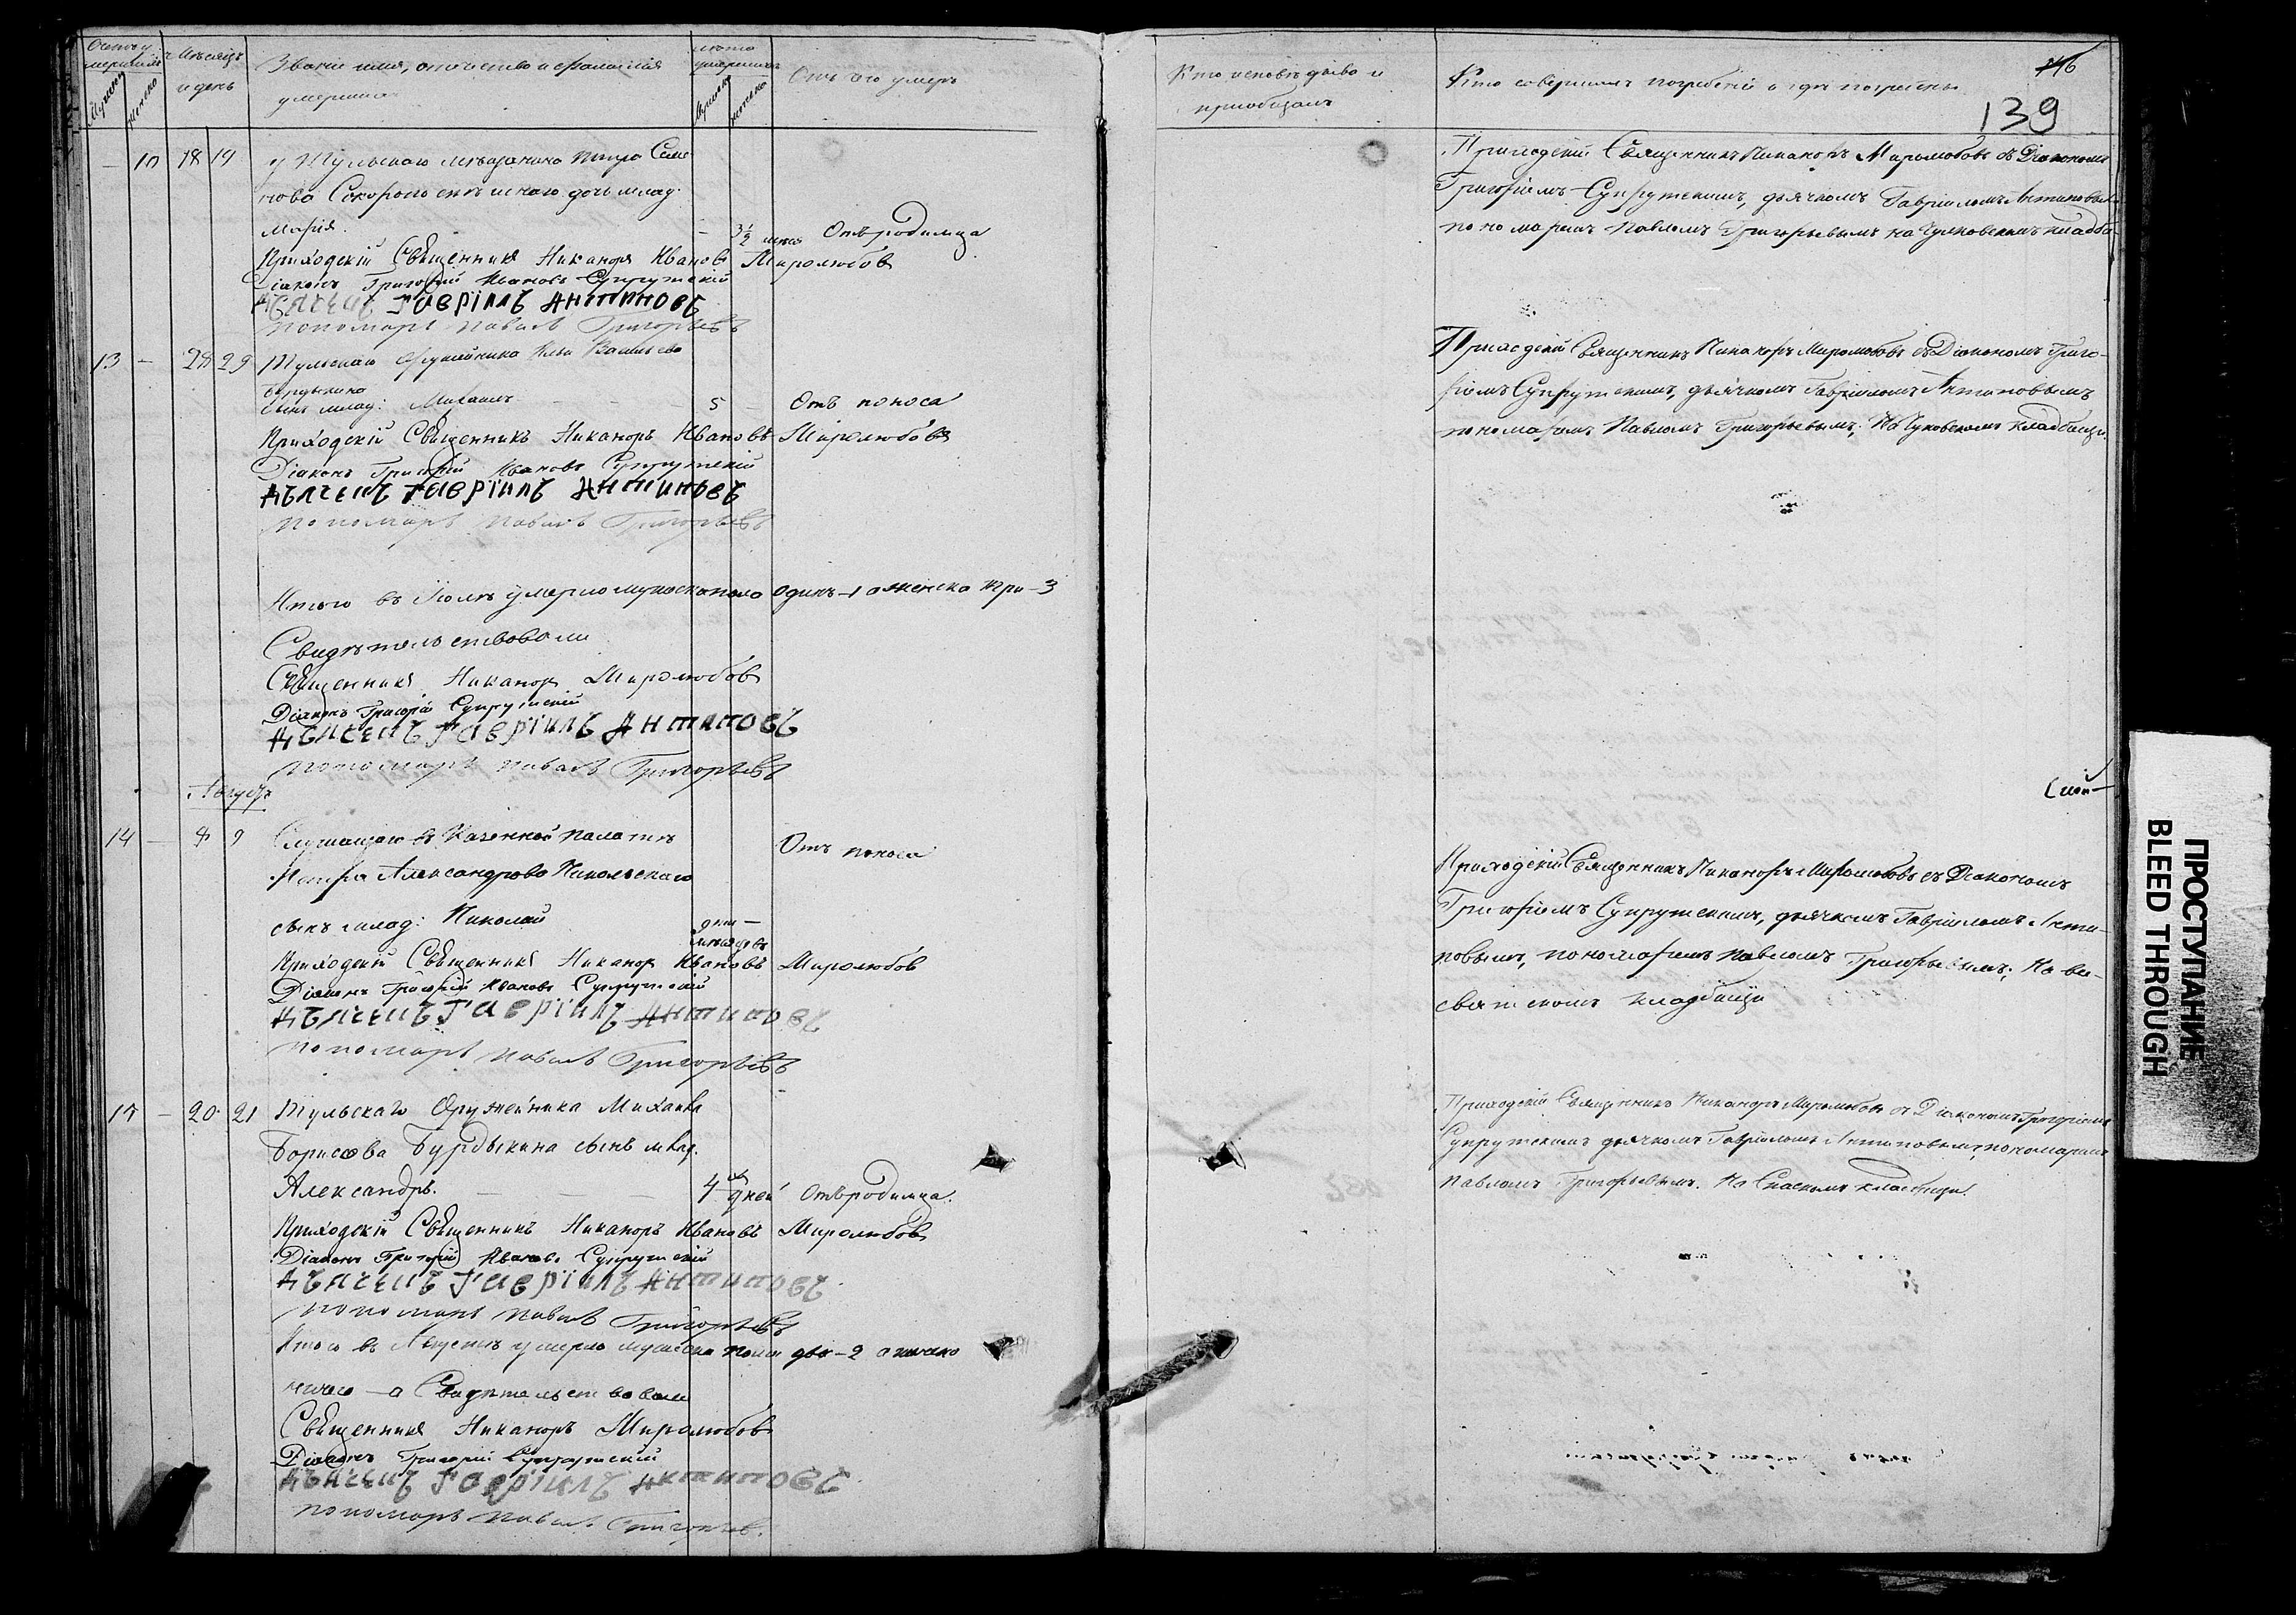 Счетъ умершихъ
Мужеска
женска
Мѣсяцъ и день
Званiе имя, отчество и фамилiя
умершаго
лѣта умершаго
Мужеска
женска
Отъ чего умеръ
— 10 18 19 у Тульскаго мѣщанина Петра Семе
нова дочь млад.
Марiя. — 3½ Отъ родимца
Приходскiй Священникъ Никаноръ Ивановъ Миролюбовъ
Дiаконъ Григорiй Ивановъ Супрутскiй
Дьячекъ Гаврiилъ Антиповъ
пономарь Павелъ Григорьевъ
13 — 28 29 Тульскаго Оружейника Ильи Васильева
Бурдыкина
сынъ млад: Михаилъ — — — 5 — Отъ поноса
Приходскiй Священникъ Никаноръ Ивановъ Миролюбовъ
Дiаконъ Григорiй Ивановъ Супрутскiй
Дьячекъ Гаврiилъ Антиповъ
пономарь Павелъ Григорьевъ
Итого въ Iюлѣ умерло мужеска пола одинъ–1 а женска три–3
Свидѣтельствовали
Священникъ Никаноръ Миролюбовъ
Дiаконъ Григорiй Супрутскiй
Дьячекъ Гаврiилъ Антиповъ
пономарь Павелъ Григорьевъ
Августъ
14 — 8 9 Служащаго въ Казенной палатѣ Отъ поноса
Петра Александрова Никольскаго
сынъ млад: Николай
мѣсяцевъ
Приходскiй Священникъ Никаноръ Ивановъ Миролюбовъ
Дiаконъ Григорiй Ивановъ Супрутскiй
Дьячекъ Гаврiилъ Антиповъ
пономарь Павелъ Григорьевъ
15 — 20 21 Тульскаго Оружейника Михаила
Борисова Бурдыкина сынъ млад.
Александръ. — — — 4 дней Отъ родимца.
Приходскiй Священникъ Никаноръ Ивановъ Миролюбовъ
Дiаконъ Григорiй Ивановъ Супрутскiй
Дьячекъ Гаврiилъ Антиповъ
пономарь Павелъ Григорьевъ
Итого въ Августѣ умерло мужеска пола два–2 а женска
ничего –0 Свидѣтельствовали
Священникъ Никаноръ Миролюбовъ
Дiаконъ Григорiй Супрутскiй
Дьячекъ Гаврiилъ Антиповъ
пономарь Павелъ Григорьевъ.
Кто исповѣдывалъ и
прiобщалъ
Кто совершалъ погребенiе и гдѣ погребены
139
Приходскiй Священникъ Никаноръ Миролюбовъ съ Дiакономъ
Григорiемъ Супрутскимъ, дьячкомъ Гаврiиломъ Антиповымъ
пономаремъ Павломъ Григорьевымъ на Чулковскомъ кладби
Приходскiй Священникъ Никаноръ Миролюбовъ съ Дiакономъ Григо–
рiемъ Супрутскимъ, дьячкомъ Гаврiиломъ Антиповымъ
пономаремъ Павломъ Григорьевымъ; На Чулковскомъ кладбищѣ.
Приходскiй Священникъ Никаноръ Миролюбовъ съ Дiакономъ
Григорiемъ Супрутскимъ, дьячкомъ Гаврiиломъ Анти–
повымъ, пономаремъ Павломъ Григорьевымъ; На все–
святскомъ кладбищѣ
Приходскiй Священникъ Никаноръ Миролюбовъ съ Дiакономъ Григорiемъ
Супрутскимъ дьячкомъ Гаврiиломъ Антиповымъ, пономаремъ
Павломъ Григорьевымъ. На Спаскомъ кладбищѣ.
ПРОСТУПАНИЕ
BLEED THROUGH